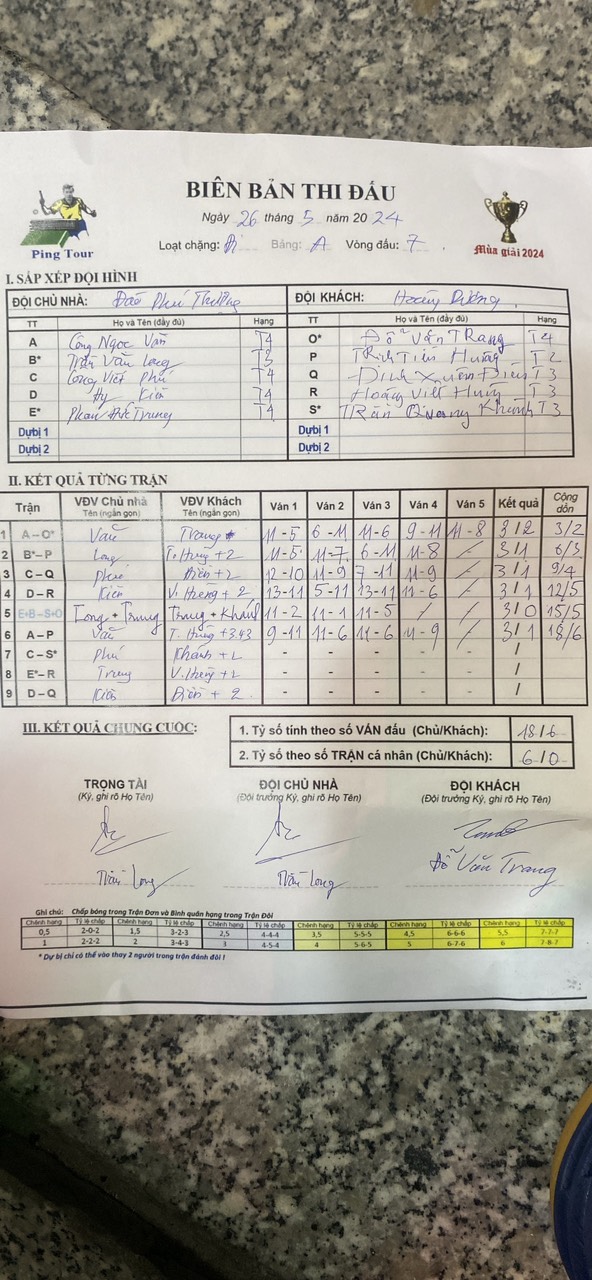 BIÊN BẢN THI ĐẤU
Ngày 26 tháng 5 năm 2024
Ping Tour
Loạt chặng: Đi Bảng: A Vòng đấu: 7
Mùa giải 2024
I. SẮP XẾP ĐỘI HÌNH
ĐỘI CHỦ NHÀ: Đào Phú Thưởng ĐỘI KHÁCH: Hoàng Dương
TT Họ và Tên (đầy đủ) Hạng TT Họ và Tên (đầy đủ) Hạng
A Công Ngọc Văn T4 O* Đỗ Văn TRang T4
B* Trần Văn Long T3 P TRịnh Tiến Hưng T2
C Công Viết Phú T4 Q Đinh Xuân Điển T3
D Hy Kiên T4 R Hoàng Việt Hưng T3
E* Phan Đức Trung T4 S* TRần Quang Khánh T3
Dự bị 1 Dự bị 1
Dự bị 2 Dự bị 2
II. KẾT QUẢ TỪNG TRẬN
Trận VĐV Chủ nhà Tên (ngắn gọn) VĐV Khách Tên (ngắn gọn) Ván 1 Ván 2 Ván 3 Ván 4 Ván 5 Kết quả Cộng dồn
1 A–O* Văn Trang 11-5 6-11 11-6 9-11 11-8 3/2 3/2
2 B*–P Long T. Hưng+2 11-5 11-7 6-11 11-8 / 3/1 6/3
3 C–Q Phú Điển+2 12-10 11-9 7-11 11-9 / 3/1 9/4
4 D–R Kiên V. Hưng+2 13-11 5-11 13-11 11-6 / 3/1 12/5
5 E+B–S+O Long+Trung Trang+Khánh 11-2 11-1 11-5 / / 3/0 15/5
6 A–P Văn T. Hưng+3.43 9-11 11-6 11-6 11-9 / 3/1 18/6
7 C–S* Phú Khánh+2 - - - - - /
8 E*–R Trung V. Hưng+2 - - - - - /
9 D–Q Kiên Điển+2 - - - - - /
III. KẾT QUẢ CHUNG CUỘC:
1. Tỷ số tính theo số VÁN đấu (Chủ/Khách): 18/6
2. Tỷ số theo số TRẬN cá nhân (Chủ/Khách): 6/0
TRỌNG TÀI ĐỘI CHỦ NHÀ ĐỘI KHÁCH
(Ký, ghi rõ Họ Tên) (Đội trưởng Ký, ghi rõ Họ Tên) (Đội trưởng Ký, ghi rõ Họ Tên)
Trần Long Trần Long Đỗ Văn Trang
Ghi chú: Chấp bóng trong Trận Đơn và Bình quân hạng trong Trận Đôi
Chênh hạng Tỷ lệ chấp Chênh hạng Tỷ lệ chấp Chênh hạng Tỷ lệ chấp Chênh hạng Tỷ lệ chấp Chênh hạng Tỷ lệ chấp Chênh hạng Tỷ lệ chấp
0,5 2-0-2 1,5 3-2-3 2,5 4-4-4 3,5 5-5-5 4,5 6-6-6 5,5 7-7-7
1 2-2-2 2 3-4-3 3 4-5-4 4 5-6-5 5 6-7-6 6 7-8-7
* Dự bị chỉ có thể vào thay 2 người trong trận đánh đôi !